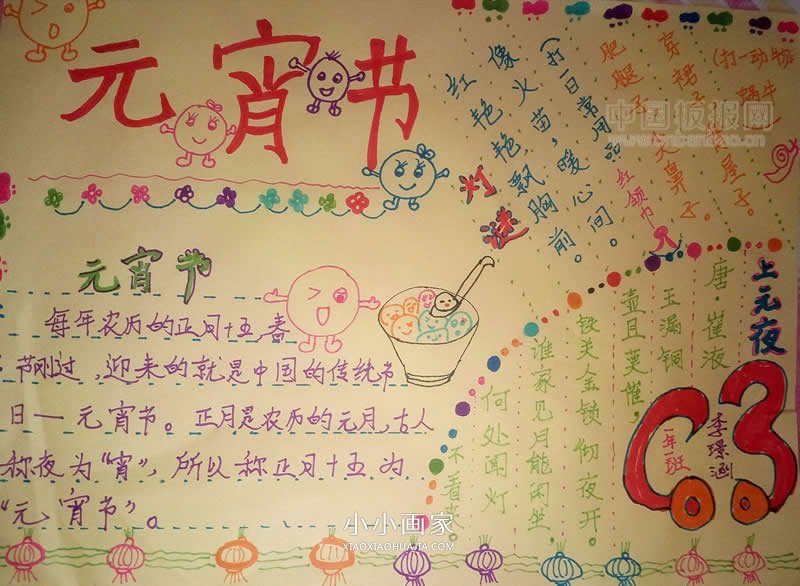 元宵节
灯谜
红艳艳飘胸前。
像火苗,暖心间。
(打一日常用品)红领巾
肥腿子,尖鼻子。
穿裙子,背屋子。
(打一动物)蜗牛
中国板报网
元宵节
每年农历的正月十五,春
节刚过,迎来的就是中国的传统节
日—元宵节。正月是农历的元月,古人
称夜为“宵”,所以称正月十五为
“元宵节”。
上元夜
唐·崔液
玉漏铜
壶且莫催,
铁关金锁彻夜开。
谁家见月能闲坐,
何处闻灯
不看来。
一年一班
李璟涵
小小画家
XIAOXIAOHUAJIA.COM